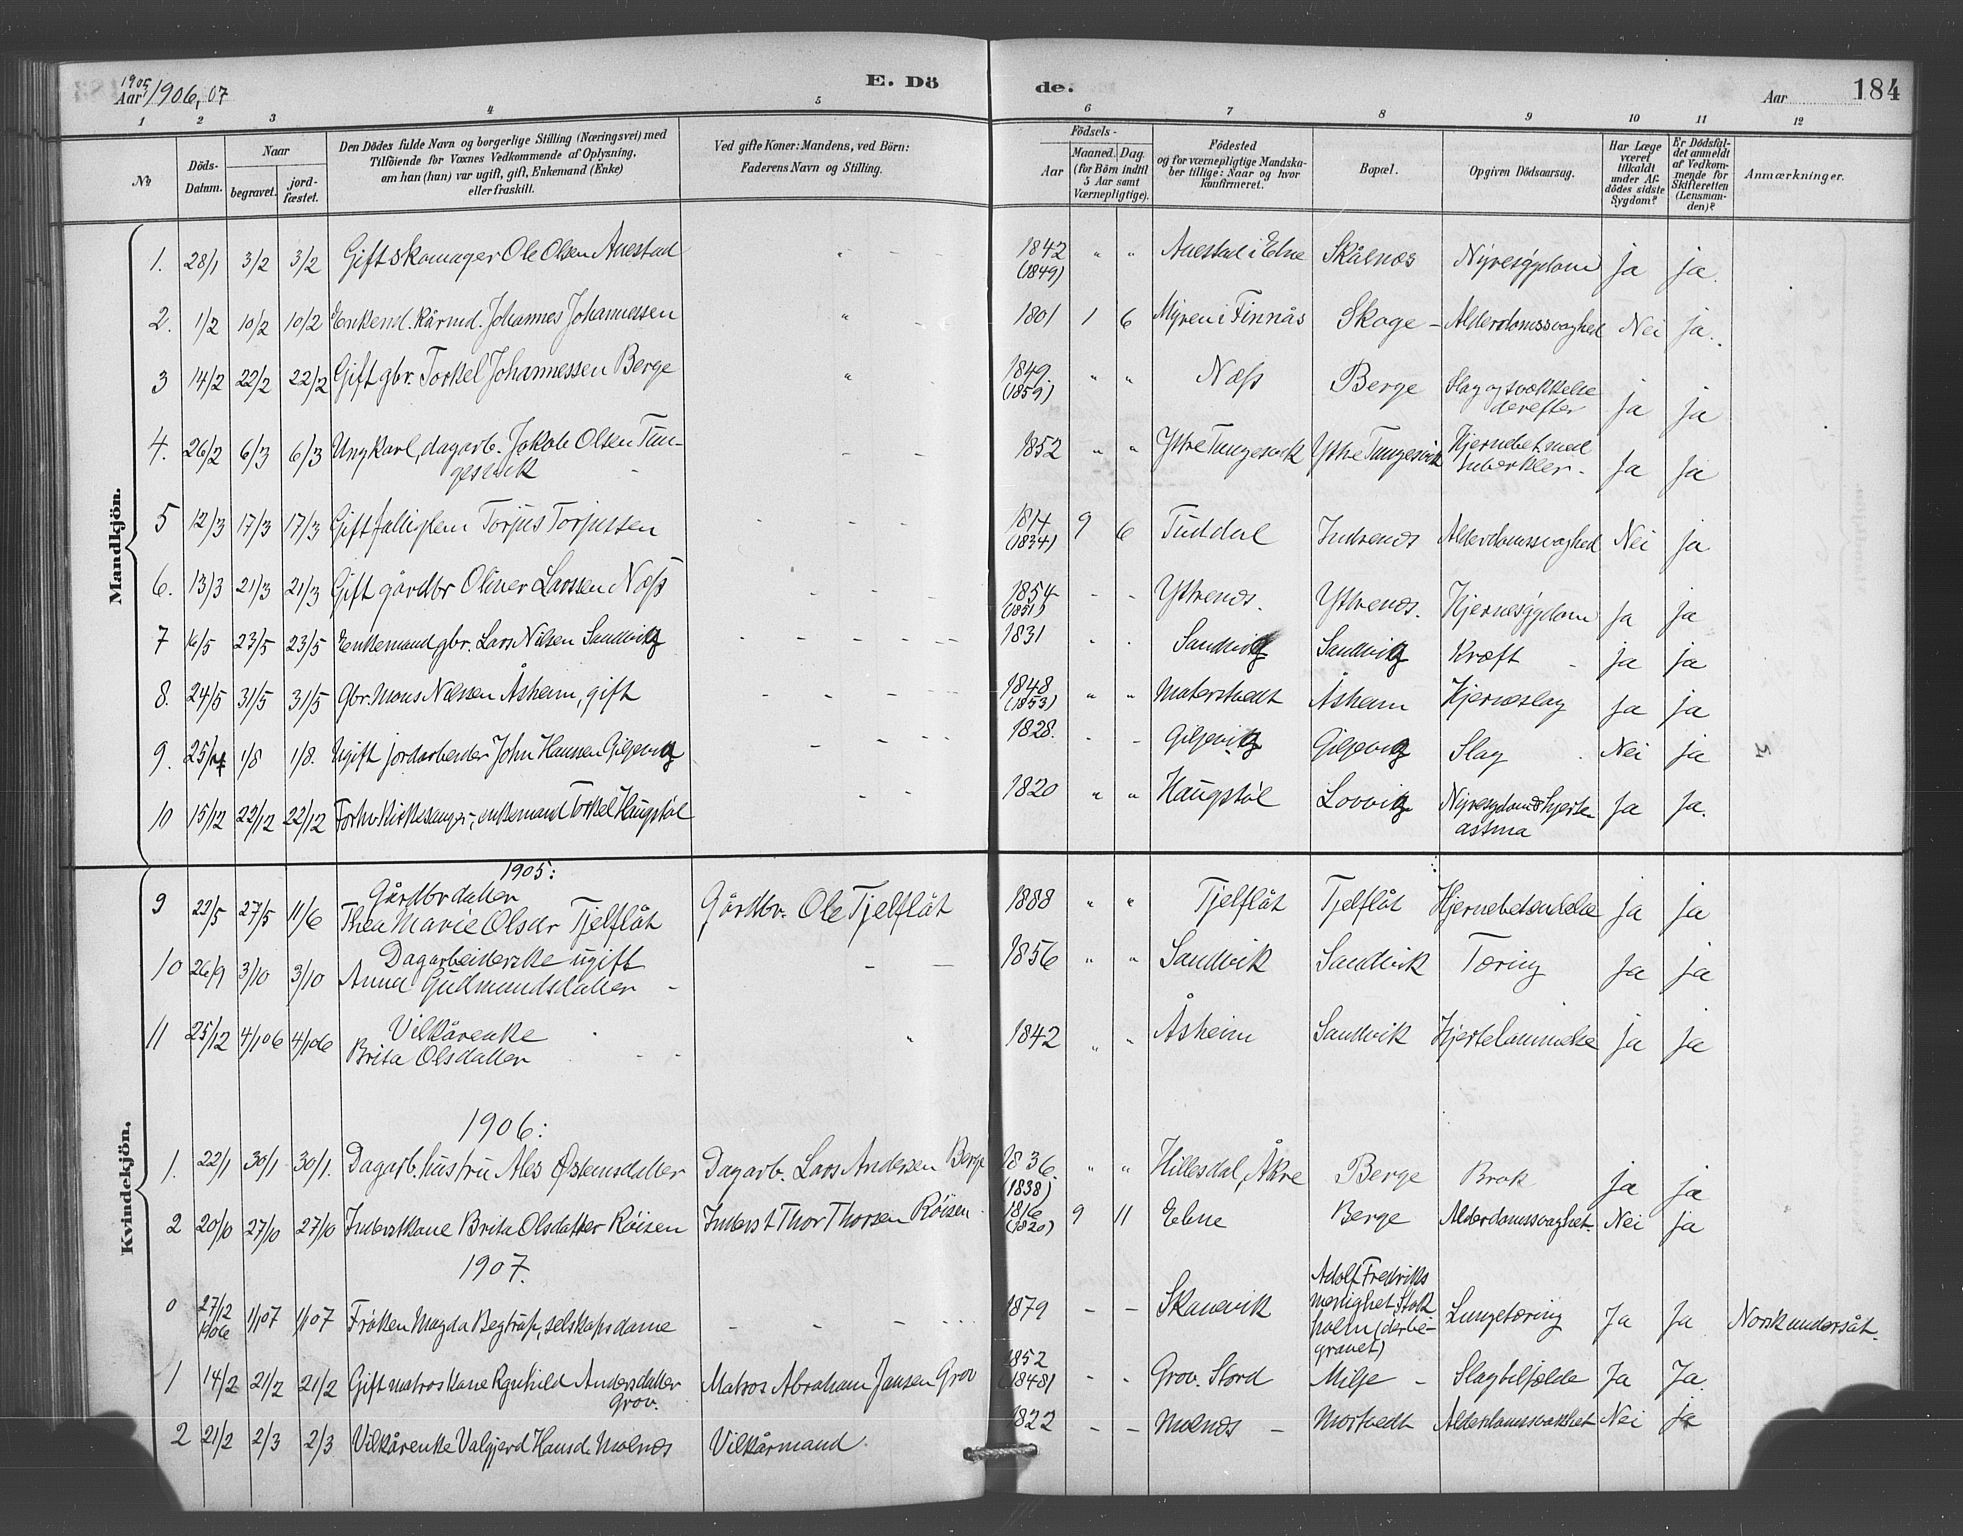 1905
Aar 1906, 07
E. Dö
de.
Aar
184
1 2 3 4 5 6 7 8 9 10 11 12
No.
Döds-Datum.
Naar
begravet.
jord-fæstet.
Den Dödes fulde Navn og borgerlige Stilling (Næringsvei) med
Tilföiende for Voxnes Vedkommende af Oplysning,
om han (hun) var ugift, gift, Enkemand (Enke)
eller fraskilt.
Ved gifte Koner: Mandens, ved Börn:
Faderens Navn og Stilling.
Födsels-
Aar
Maaned. Dag.
(for Börn indtil
5 Aar samt
Værnepligtige).
Födested
og for værnepligtige Mandska-
ber tillige: Naar og hvor
konfirmeret.
Bopæl.
Opgiven Dödsaarsag.
Har Læge
været
tilkaldt
under Af-
dödes sidste
Sygdom?
Er Dödsfal-
det anmeldt
af Vedkom-
mende for
Skifteretten
(Lensman-
den)?
Anmærkninger.
Mandkjön.
1. 28/1 3/2 3/2 Gift skomager Ole Olsen Auestad " 1842 (1849) " " Auestad i Edne Skålnæs Nyresygdom ja ja.
2. 1/2 10/2 10/2 Enkemd. kårmd. Johannes Johannessen " 1801 1 6 Myren i Finnås Skoge - Alderdomssvaghed Nei ja.
3 14/2 22/2 22/2 Gift gbr. Torkel Johannessen Berge " 1849 (1859) " " Næss Berge Slag og svækkelse derefter ja ja
4. 26/2 6/3 6/3 Ungkarl, dagarb. Jakob Olsen Tun-
gesvik - - 1852 " " Ytre Tungesvik Ytre Tungesvik Hjernebet. med tuberkler - ja ja
5 12/3 17/3 17/3 Gift fattiglem Torjus Torjussen - - - 1814 (1834) 9 6 Tuddal Indrenæs Alderdomssvaghed Nei ja
6. 13/3 21/3 21/3 Gift gårdbr Oliner Larssen Næss - - - 1854 (1851) - - Ytrenæs. Ytrenæs. Hjernesygdom ja ja
7 16/5 23/5 23/5 Enkemand gbr. Lars Nilsen Sandvik - - - 1831 " . Sandvik Sandvik Kræft - ja ja
8. 24/5 31/5 31/5 Gbr. Mons Nilssen Åsheim, gift - - - 1848 (1853) " " Materstvedt Åsheim Hjerneslag ja ja
9. 25/7 1/8 1/8. Ugift jordarbeider John Hanssen Giljevik - - - 1828. - - Giljevik Giljevik Slag . Nei ja
10 15/12 22/12 22/12 Forhv. Kirkesanger, enkemand Torkel Haugstöl - - 1820 " " Haugstöl Lovvik Nyresygdom & hjerte
astma ja ja.
Kvindekjön.
1905:
9 22/5 27/5 11/6 Gårdbrdatter
Thea Marie Olsdr Tjelflåt Gårdbr. Ole Tjelflåt 1888 " " Tjelflåt Tjelflåt Hjernebetændelse ja ja
10 26/9 3/10 3/10 Dagarbeiderske ugift
Anna Gudmundsdatter - - - 1856 " " Sandvik Sandvik Tæring ja ja
11 25/12 4/1 06 4/1 06 Vilkårenke
Brita Olsdatter " 1842 " " Åsheim Sandvik Hjertelammelse ja ja
1906:
1. 22/1 30/1 30/1. Dagarb. hustru Ales Østensdatter Dagarb. Lars Andersen Berge 1836 (1838) " " Hillesdal, Åkre Berge Brok ja ja
2 20/10 27/10 27/10 Inderstkone Brita Olsdatter Röisen Inderst Thor Thorsen Röisen 1816 (1820) 9 11 Edne Berge Alderdomssvaghet. Nei ja
1907.
0 27/12 1906 1/1 07 1/1 07 Fröken Magda Begtrup, selskapsdame - - - 1879 - - Skanevik Adolf Fredriks
menighet, Stok
holm (der be-
gravet) Lungetæring Ja Ja Norsk undersåt.
1 14/2 21/2 21/2 Gift matroskone Ragnhild Andersdatter
Grov. Matros Abraham Jansen Grov 1852 (1848) - - Grov. Stord Milje - Slagtilfælde Ja Ja.
2 21/2 2/3 2/3 Vilkårenke Valgjerd Hansd. Molnæs Vilkårmand. 1822 - - Molnæs - Mortvedt Alderdomssvakhet Nei ja